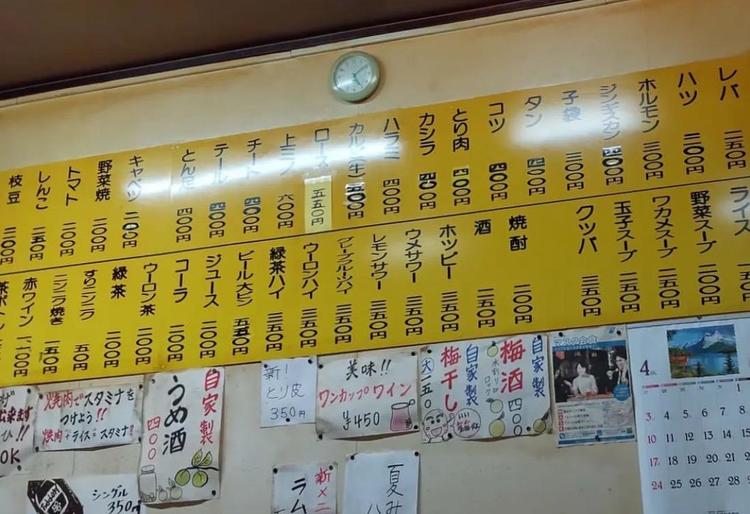 レバ 二五〇円
ハツ 二〇〇円
ホルモン 三〇〇円
ジンギスカン 四〇〇円
子袋 三〇〇円
タン 四〇〇円
コツ 四〇〇円
とり肉 四〇〇円
カシラ 四〇〇円
ハラミ 四〇〇円
カルビ(牛) 五〇〇円
ロース 五五〇円
上ミノ 六〇〇円
チート 四〇〇円
テール 四〇〇円
とん足 四〇〇円
キャベツ 二〇〇円
野菜焼 二〇〇円
トマト 二〇〇円
しんこ 二五〇円
枝豆 二〇〇円
ライス
野菜スープ 二〇〇円
ワカメスープ 二五〇円
玉子スープ 二五〇円
クッパ 三五〇円
焼酎 二〇〇円
酒 二五〇円
ホッピー 三五〇円
ウメサワー 三五〇円
レモンサワー 三五〇円
グレープフルーツハイ 三五〇円
ウーロンハイ 三五〇円
緑茶ハイ 三五〇円
ビール大ビン 五五〇円
ジュース 二〇〇円
コーラ 二〇〇円
ウーロン茶 二〇〇円
緑茶 二〇〇円
すりニンニク 五〇円
ニンニク焼き 一五〇円
赤ワイン
焼肉でスタミナを
つけよう!!
焼肉+ライス=スタミナ!!
自家製
うめ酒
四〇〇
新!
とり皮
350円
美味!!
ワンカップワイン
¥450
自家製
梅干し
(大)一五〇円
自家製
梅酒
ロック
シングル
350円
新メニ
ラム
夏み
4
3
10
17
24
OK